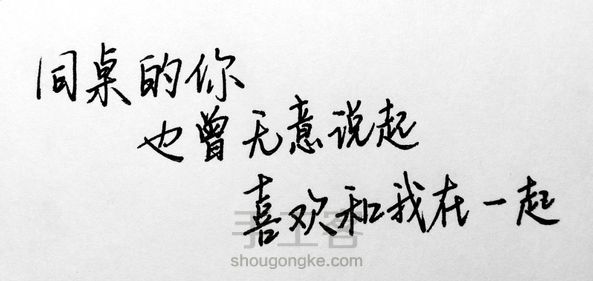 同桌的你
也曾无意说起
喜欢和我在一起
手工客
shougongke.com